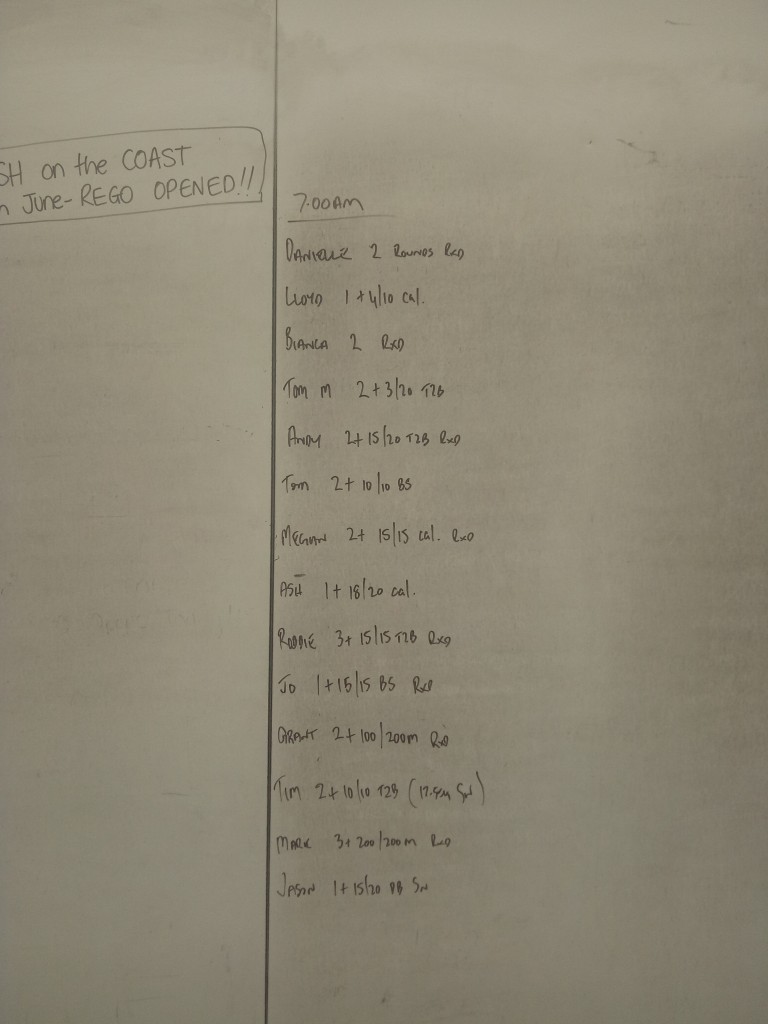 SH on the COAST
June - REGO OPENED!!
7.00AM
DANIELLE 2 ROUNDS RXD
LLOYD 1 + 4/10 cal.
BIANCA 2 RXD
TOM M 2 + 3/20 T2B
ANDY 2 + 15/20 T2B RXD
TOM 2 + 10/10 BS
MEGHAN 2 + 15/15 cal. RXD
ASH 1 + 18/20 cal.
ROBBIE 3 + 15/15 T2B RXD
JO 1 + 15/15 BS RXD
GRANT 2 + 100/200m RXD
TIM 2 + 10/10 T2B
MARK 3 + 200/200m RXD
JASON 1 + 15/20 DB SN